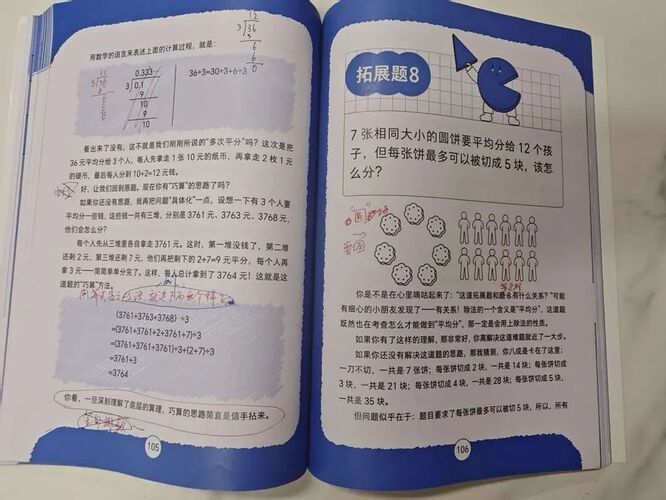 用数学的语言来表述上面的计算过程，就是：
12
3 36
0.333
3 0.1
9
10
9
10
36÷3=30÷3+6÷3
看出来了没有，这不就是我们刚刚所说的“多次平分”吗？这次是把
36元平均分给3个人，每人先拿走1张10元的纸币，再拿走2枚1元
的硬币，最后每人分到10+2=12元钱。
好，让我们回到原题。现在你有“巧算”的思路了吗？
如果你还没有思路，我再把问题“具体化”一点，设想一下有3个人要
平均分一些钱，这些钱一共有三堆，分别是3761元、3763元、3768元，
他们会怎么分？
每个人先从三堆里各自拿走3761元。这时，第一堆没钱了，第二堆
还剩2元，第三堆还剩7元，他们再把剩下的2+7=9元平分，每个人再
拿3元——简简单单分完了。这样，每人总计拿到了3764元！这就是这
道题的“巧算”方法。
(3761+3763+3768)÷3
=(3761+3761+2+3761+7)÷3
=(3761+3761+3761)÷3+(2+7)÷3
=3761+3
=3764
你看，一旦深刻理解了底层的算理，巧算的思路简直是信手拈来。
105
拓展题8
7张相同大小的圆饼要平均分给12个孩
子，但每张饼最多可以被切成5块，该怎
么分？
你是不是在心里嘀咕起来：“这道拓展题和题8有什么关系？”可能
有细心的小朋友发现了——有关系！除法的一个含义是“平均分”，这道题
既然也在考查怎么才能做到“平均分”，那一定是会用上除法的性质。
如果你有了这样的理解，那非常好，你离解决这道难题就近了一大步。
如果你还没有解决这道题的思路，那我猜测，你八成是卡在了这里：
一刀不切，一共是7张饼；每张饼切成2块，一共是14块；每张饼切成
3块，一共是21块；每张饼切成4块，一共是28块；每张饼切成5块，
一共是35块。
但问题似乎在于：题目要求了每张饼最多可以被切5块，所以，所有
106